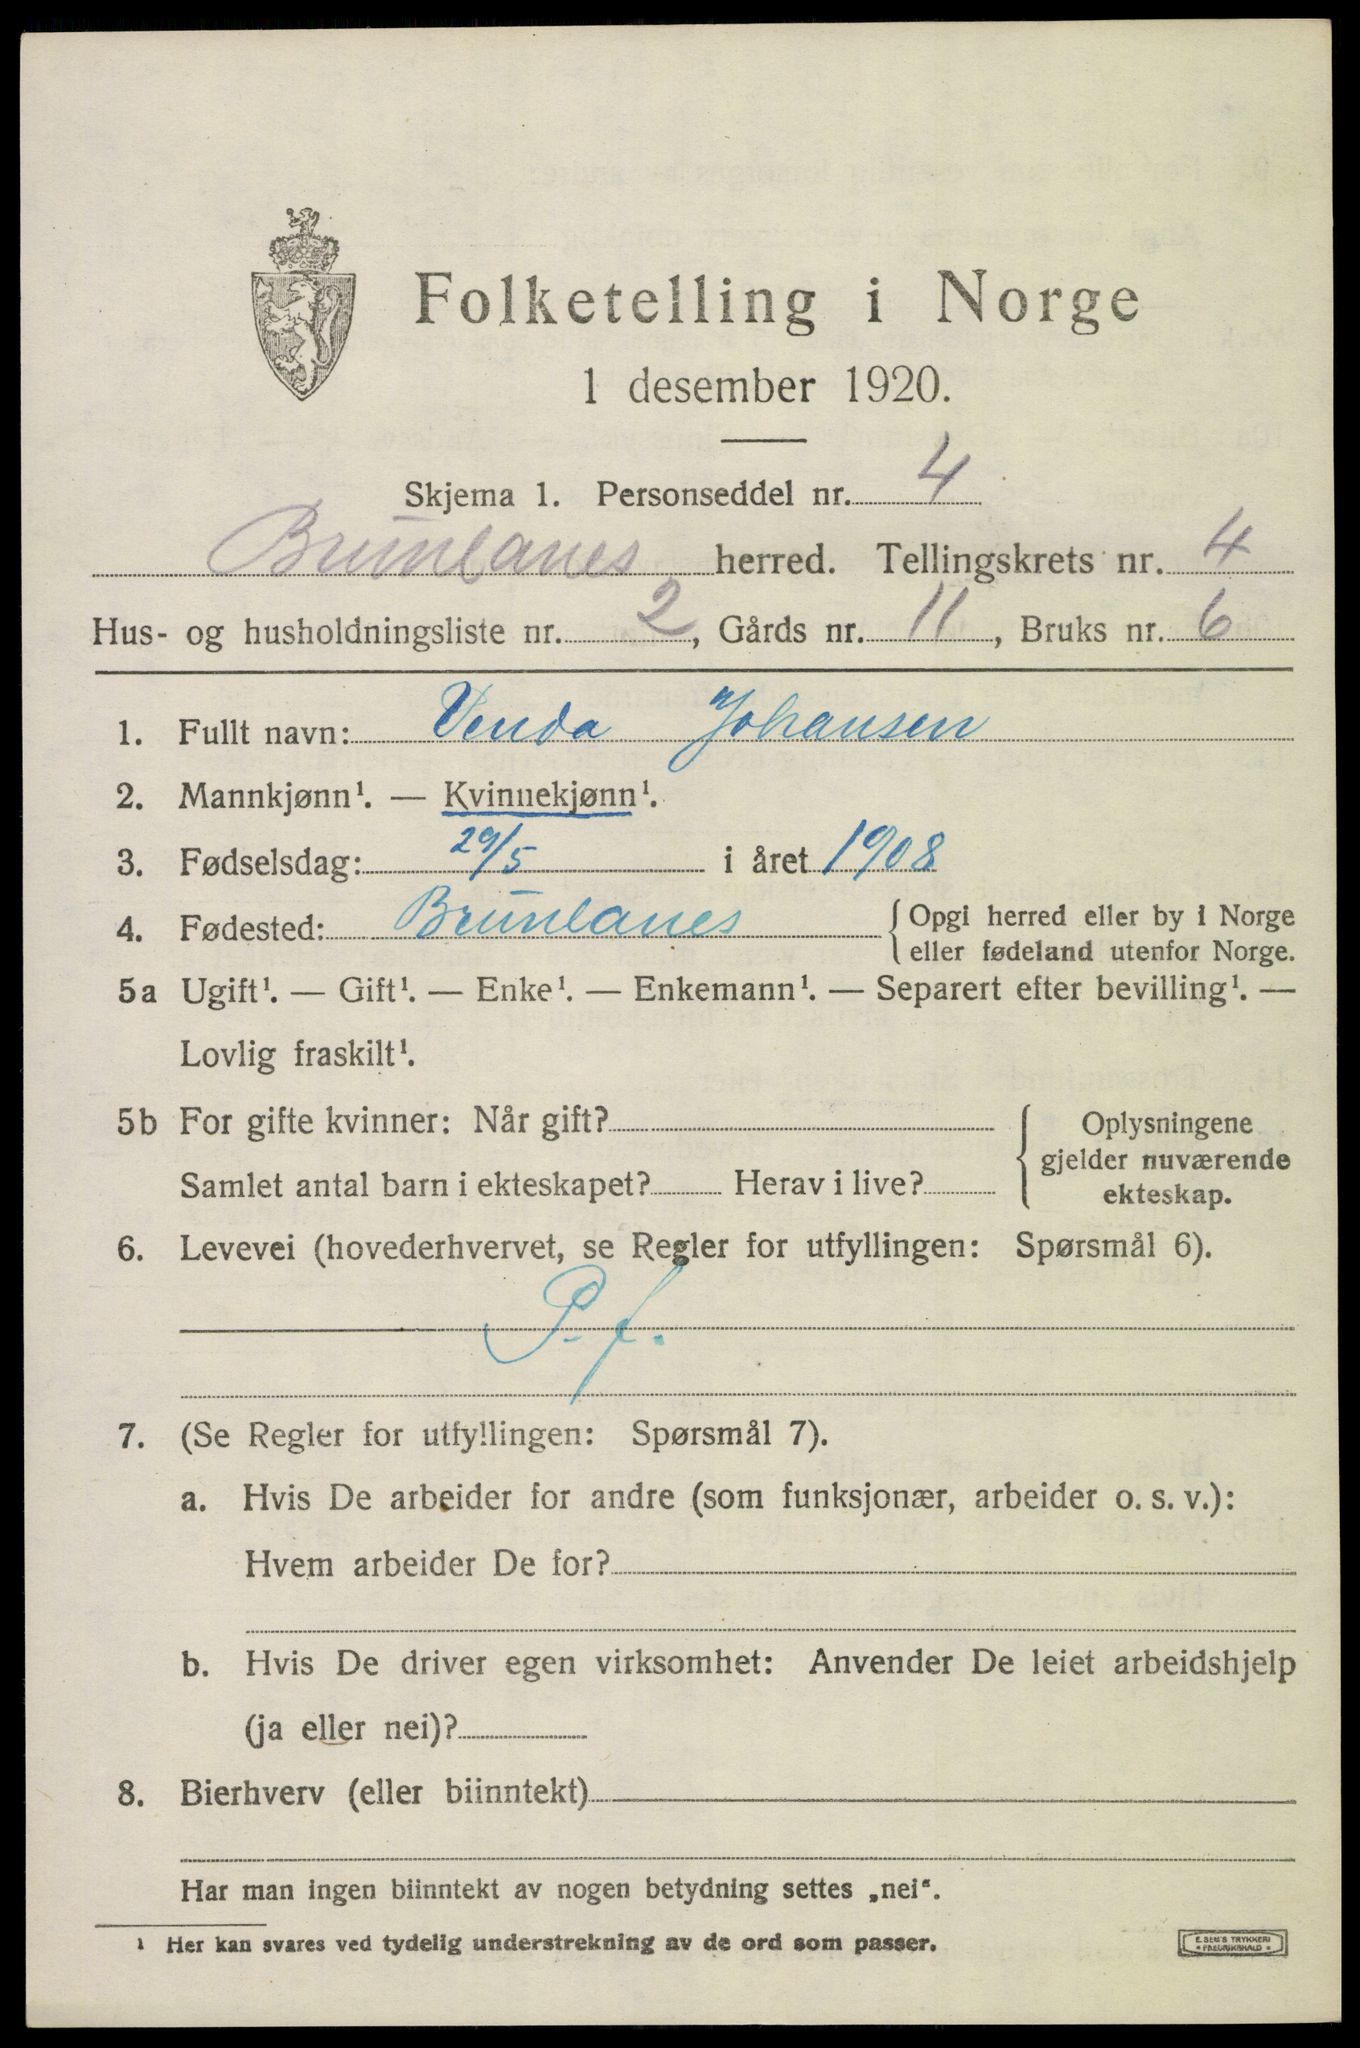 Folketelling i Norge
1 desember 1920.
Skjema 1. Personseddel nr. 4
Brunlanes herred. Tellingskrets nr. 4
Hus- og husholdningsliste nr. 2, Gårds nr. 11, Bruks nr. 6
1. Fullt navn: Venda Johansen
2. Mannkjønn¹. — Kvinnekjønn¹.
3. Fødselsdag: 29/5 i året 1908
4. Fødested: Brunlanes { Opgi herred eller by i Norge
eller fødeland utenfor Norge.
5a Ugift¹. — Gift¹. — Enke¹. — Enkemann¹. — Separert efter bevilling¹. —
Lovlig fraskilt¹.
5b For gifte kvinner: Når gift?
Samlet antal barn i ekteskapet? Herav i live?
Oplysningene
gjelder nuværende
ekteskap.
6. Levevei (hovederhvervet, se Regler for utfyllingen: Spørsmål 6).
P. f.
7. (Se Regler for utfyllingen: Spørsmål 7).
a. Hvis De arbeider for andre (som funksjonær, arbeider o. s. v.):
Hvem arbeider De for?
b. Hvis De driver egen virksomhet: Anvender De leiet arbeidshjelp
(ja eller nei)?
8. Bierhverv (eller biinntekt)
Har man ingen biinntekt av nogen betydning settes „nei“.
¹ Her kan svares ved tydelig understrekning av de ord som passer.
E. SEM'S TRYKKERI
* FREDRIKSHALD *